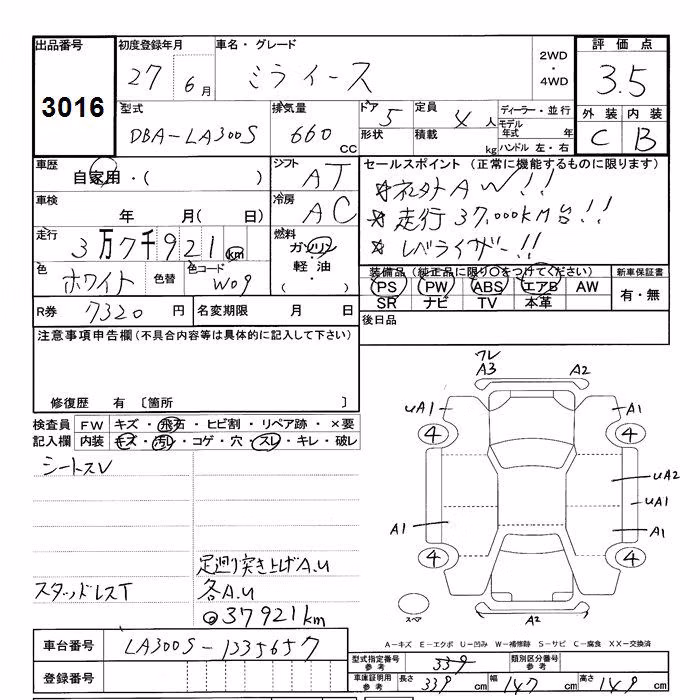 出品番号
3016
初度登録年月
27 6月
車名・グレード
ミライース
2WD
・
4WD
評価点
3.5
型式
DBA-LA300S
排気量
660 CC
ドア
5
定員
4人
ディーラー・並行
モデル年式 年
形状
積載 kg
ハンドル 左・右
外装 内装
C B
車歴
自家用・( )
シフト
AT
セールスポイント (正常に機能するものに限ります)
☆社外AW!!
☆走行37,000KM台!!
☆レベライザー!!
車検
年 月( 日)
冷房
AC
走行
3万7千921km
燃料
ガソリン
軽・油
・( )
色
ホワイト
色替
色コード
W09
装備品 (純正品に限り○をつけてください)
PS PW ABS エアB AW
SR ナビ TV 本革
新車保証書
有・無
R券 7320 円
名変期限 月 日
後日品
注意事項申告欄 (不具合内容等は具体的に記入して下さい)
修復歴 有 〔箇所 〕
検査員記入欄
FW キズ・飛石・ヒビ割・リペア跡・×要
内装 キズ・汚レ・コゲ・穴・スレ・キレ・破レ
シートスレ
足廻り突き上げA.U
スタッドレスT
各A.U
37921km
ワレ
A3 A2
uA1 A1
4 4
uA2
uA1
A1 A1
4 4
スペア
A2
A-キズ E-エクボ U-凹み W-補修跡 S-サビ C-腐食 XX-交換済
車台番号
LA300S-1335657
登録番号
型式指定番号
参考
類別区分番号
参考
車庫証明用
参考
長さ 339 cm 幅 147 cm 高さ 149 cm